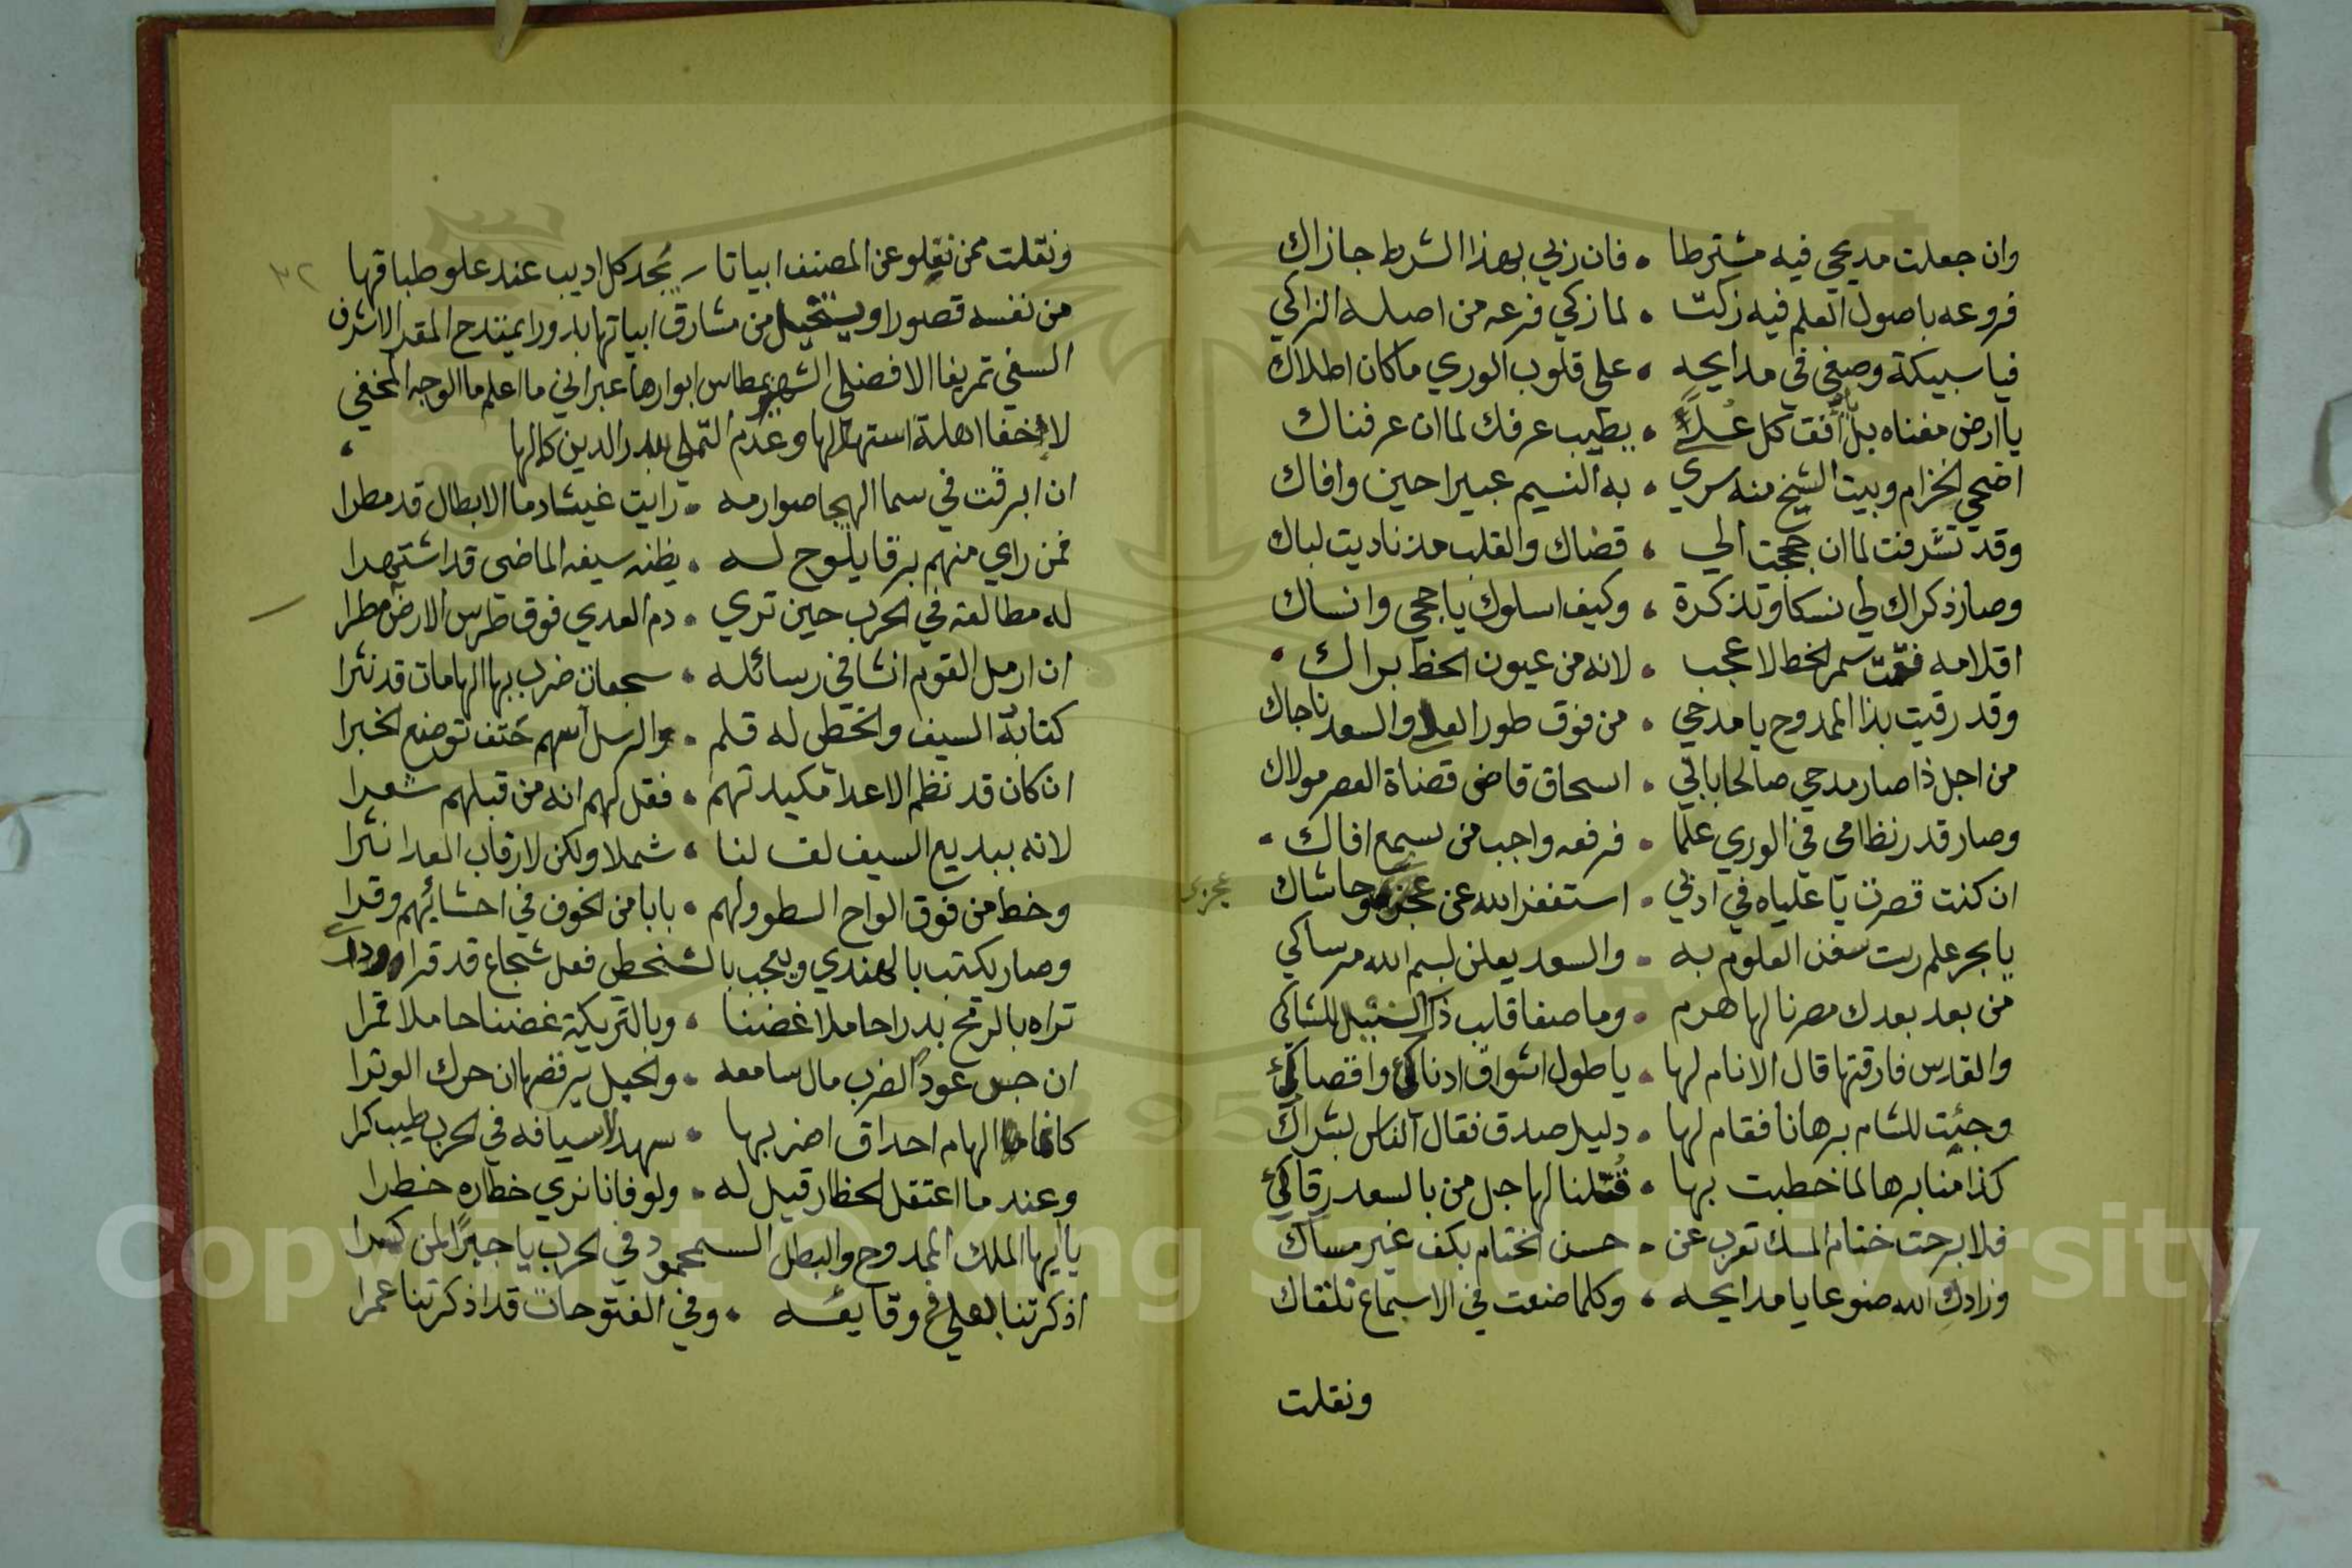 وان جعلت مديحي فيه مشترطا • فان زني بهذا الشرط جازاك
فروعه باصول العلم فيه زكت • لما زكي فرعه من اصله الزاكي
فيا سبيكة وصفي في مدايحه • على قلوب الوري ماكان اطلاك
يا ارض مغناه بل افق كل علا • بطيب عرفك لما ان عرفناك
اضحي الخزام وبيت الشيخ منه سري • به النسيم عبيرا حين وافاك
وقد تشرفت لما ان حججت الي • قضاك والقلب مذ ناديت لباك
وصار ذكراك لي نسكا وتذكرة • وكيف اسلوك ياحجي وانساك
اقلامه فقمت سمر الخط لا عجب • لانه من عيون الخط براك •
وقد رقيت بذا الممدوح يا مدحي • من فوق طور العلي والسعد ناجاك
من اجل ذا صار مدحي صالحا بابي • اسحاق قاضي قضاة العصر مولاك
وصار قدر نظامي في الوري علما • فرفعه واجب من بسمع افاك •
ان كنت قصرت يا علياه في ادبي • استغفر الله عن عجزي وحاشاك
عجزي
يا بحر علم رست سفن العلوم به • والسعد يعلن بسم الله مرساكي
من بعد بعدك مصرنا لها هرم • وما صفا قلب ذاك النيل للشاكي
والقدس فارقتها قال الانام لها • يا طول اشواق ادناكي واقصاكي
وجئت للشام برهانا فقام لها • دليل صدق فقال الناس بشراك
كذا منابرها لما خطبت بها • فقلنا لها جل من بالسعد رقاكي
فلا برحت ختام المسك تعرب عن • حسن الختام بكف غير مساك
وزادك الله ضوعا يا مدايحه • وكلما ضعت في الاسماع نلقاك
ونقلت
٣٢
ونقلت ممن نقلوعن المصنف ابياتا يجد كل اديب عند علو طباقها
من نفسه قصورا ويستحيل من مشارق ابياتها بدورا يمتدح المقر الاشرف
السفي تمربغا الافضلي الشهير بمطاس ابوارها عبراني ما اعلم ما الوجه المخفي
لاخفا اهلة استهلالها وعدم التملي ببدر الدين كمالها •
ان ابرقت في سما الهيجا صوارمه • رايت غيثا دما الابطال قد مطرا
فمن راي منهم برقا يلوح له • يظنه سيفه الماضي قد اشتهرا
له مطالعة في الحرب حين تري • دم العدي فوق طرس الارض مطرا
ان ارمل القوم انشا في رسائله • سجعات ضرب بها الهامات قد نثرا
كتابة السيف والخطي له قلم • والرسل اسهم حتف توضع الخبرا
ان كان قد نظم الاعدا مكيدتهم • فقل لهم انه من قبلهم شعرا
لانه ببديع السيف لف لنا • شملا ولكن لارقاب العدا نثرا
وخط من فوق الواح السطور لهم • بابا من الخوف في احشائهم وقرا
وصار يكتب بالهندي ويعجب بالخطي فعل شجاع قد قرا ودرا
تراه بالرمح بدرا حاملا غصنا • وبالتريكة غصنا حاملا قمرا
ان جس عود الضرب مال سامعه • والخيل يرقصها ان حرك الوترا
كانما الهام احداق اضر بها • سهد اسيافه في الحرب طيب كرا
وعند ما اعتقل الخطار قيل له • ولوفانا نري خطاره خطرا
يا ايها الملك الممدوح والبطل المحمود في الحرب يا جبرا لمن كسرا
اذكرتنا بعلي في وقايعه • وفي الفتوحات قد اذكرتنا عمرا
Copyright © King Saud University